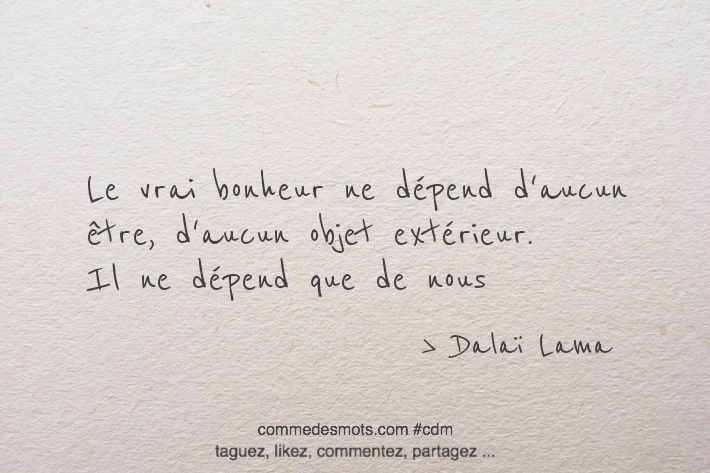 Le vrai bonheur ne dépend d'aucun
être, d'aucun objet extérieur.
Il ne dépend que de nous
> Dalaï Lama
commedesmots.com #cdm
taguez, likez, commentez, partagez ...